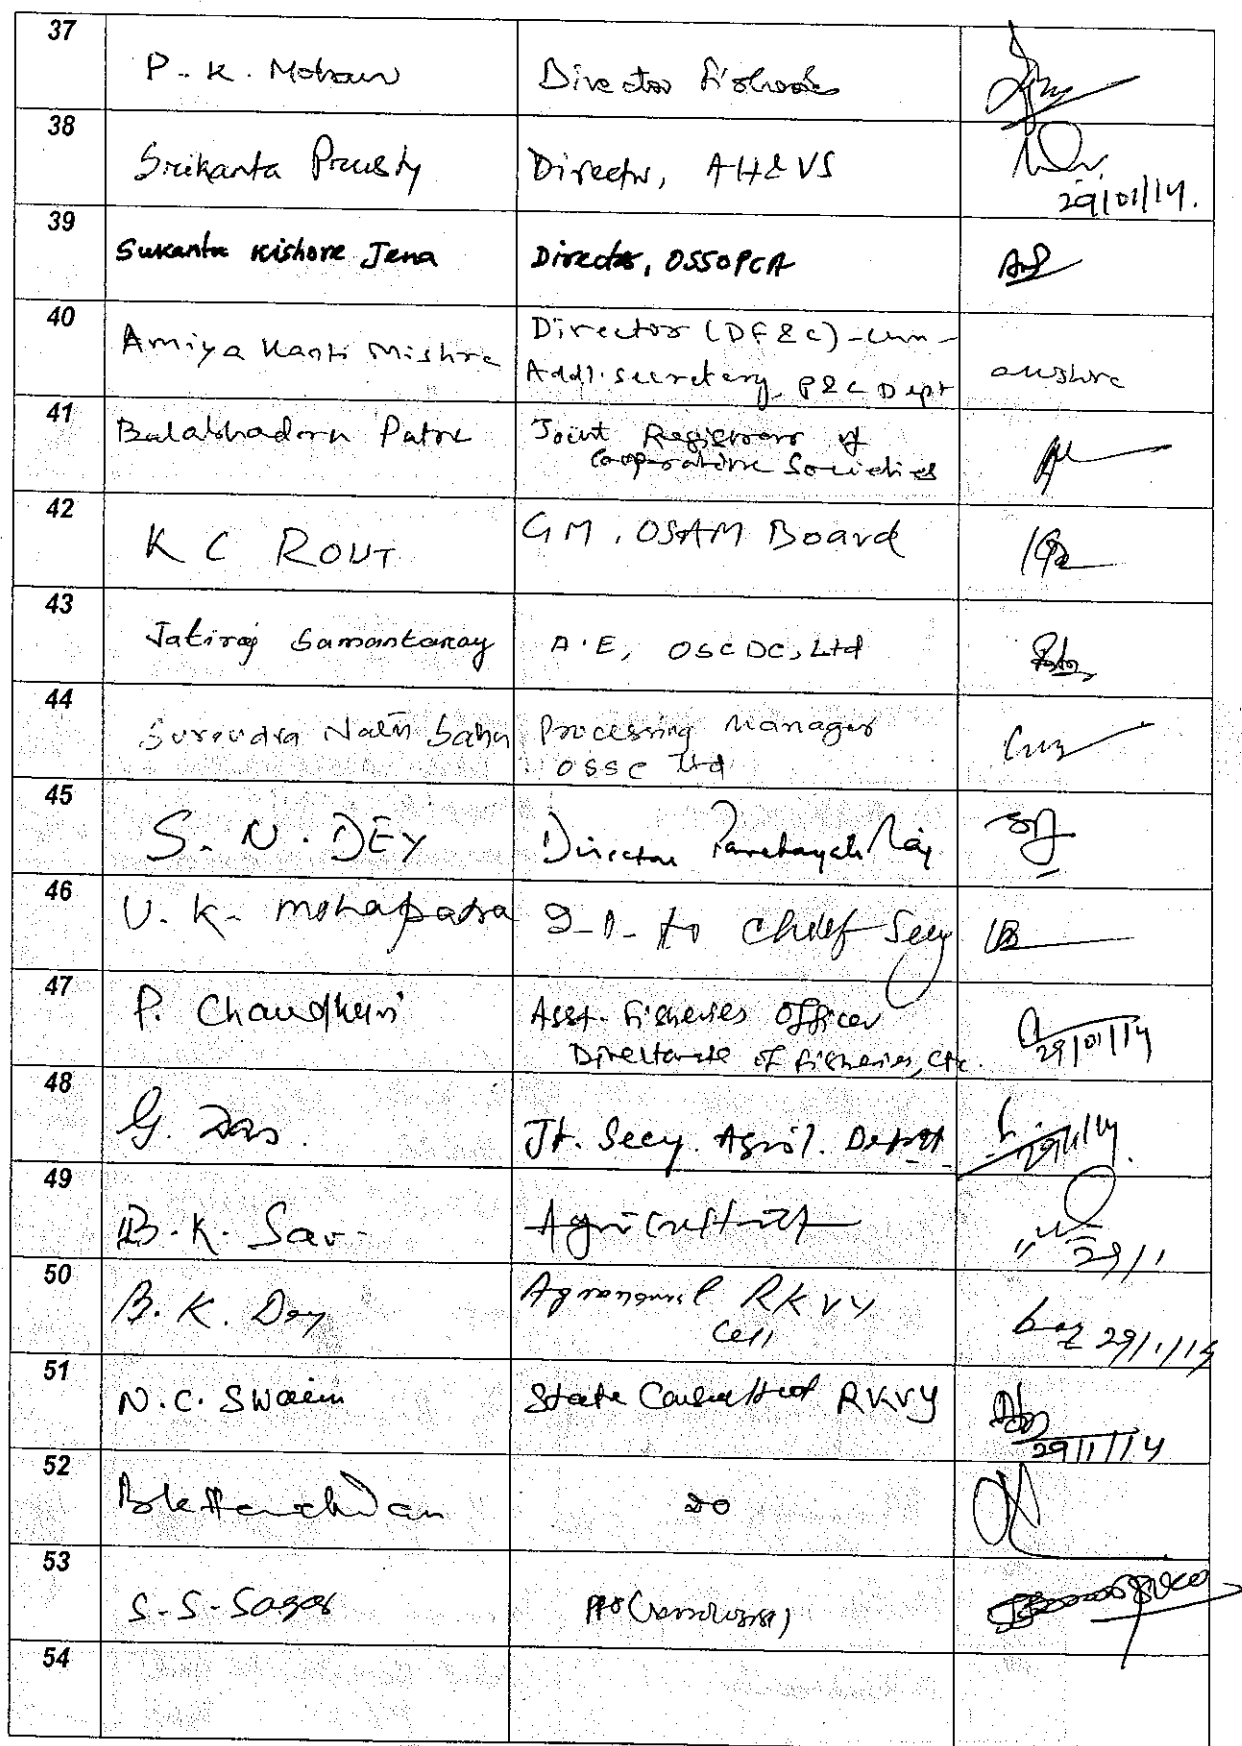 37
P. K. Mohan Director Fisheries
38
Srikanta Prusty Director, AH&VS
29/01/14.
39
Sukanta Kishore Jena Director, OSSOPCA
40
Amiya Kanti Mishra Director (DF&C)-cum-
Addl. secretary P&C Dept
41
Balabhadra Patra Joint Registrar of
Cooperative Societies
42
K C ROUT GM, OSAM Board
43
Jatiraj Samantaray A.E, OSCDC, Ltd
44
Surendra Nath Sahu Processing Manager
OSSC Ltd
45
S. N. DEY Director Panchayati Raj
46
U. K. Mohapatra to Chief Secy
47
P. Chaudhuri Asst. Fisheries Officer
Directorate of Fisheries, Ctc.
29/01/14
48
G. Das. Jt. Secy. Agril. Deptt
29/1/14.
49
B.K. 
29/1
50
B. K. Dey RKVY
Cell
29/1/14
51
N.C. Swain State Consultant RKVY
29/1/14
52
DO
53
S-S-Sagar
54